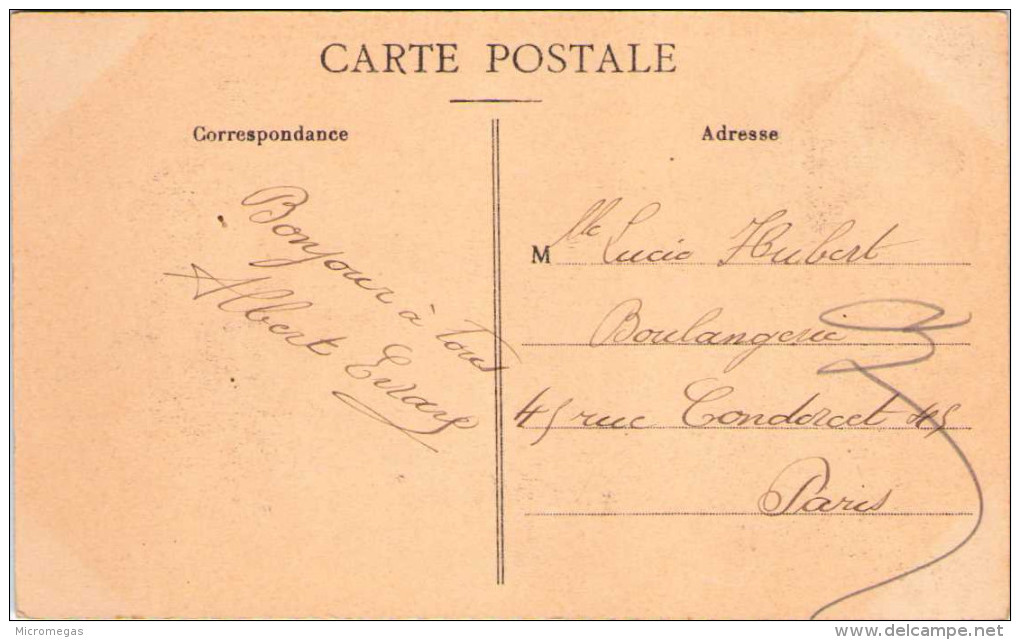 CARTE POSTALE
Correspondance
Bonjour à Tous
Albert
Adresse
Mlle Lucie Hubert
Boulangerie
45 rue Condorcet 45
Paris
Micromegas
www.delcampe.net